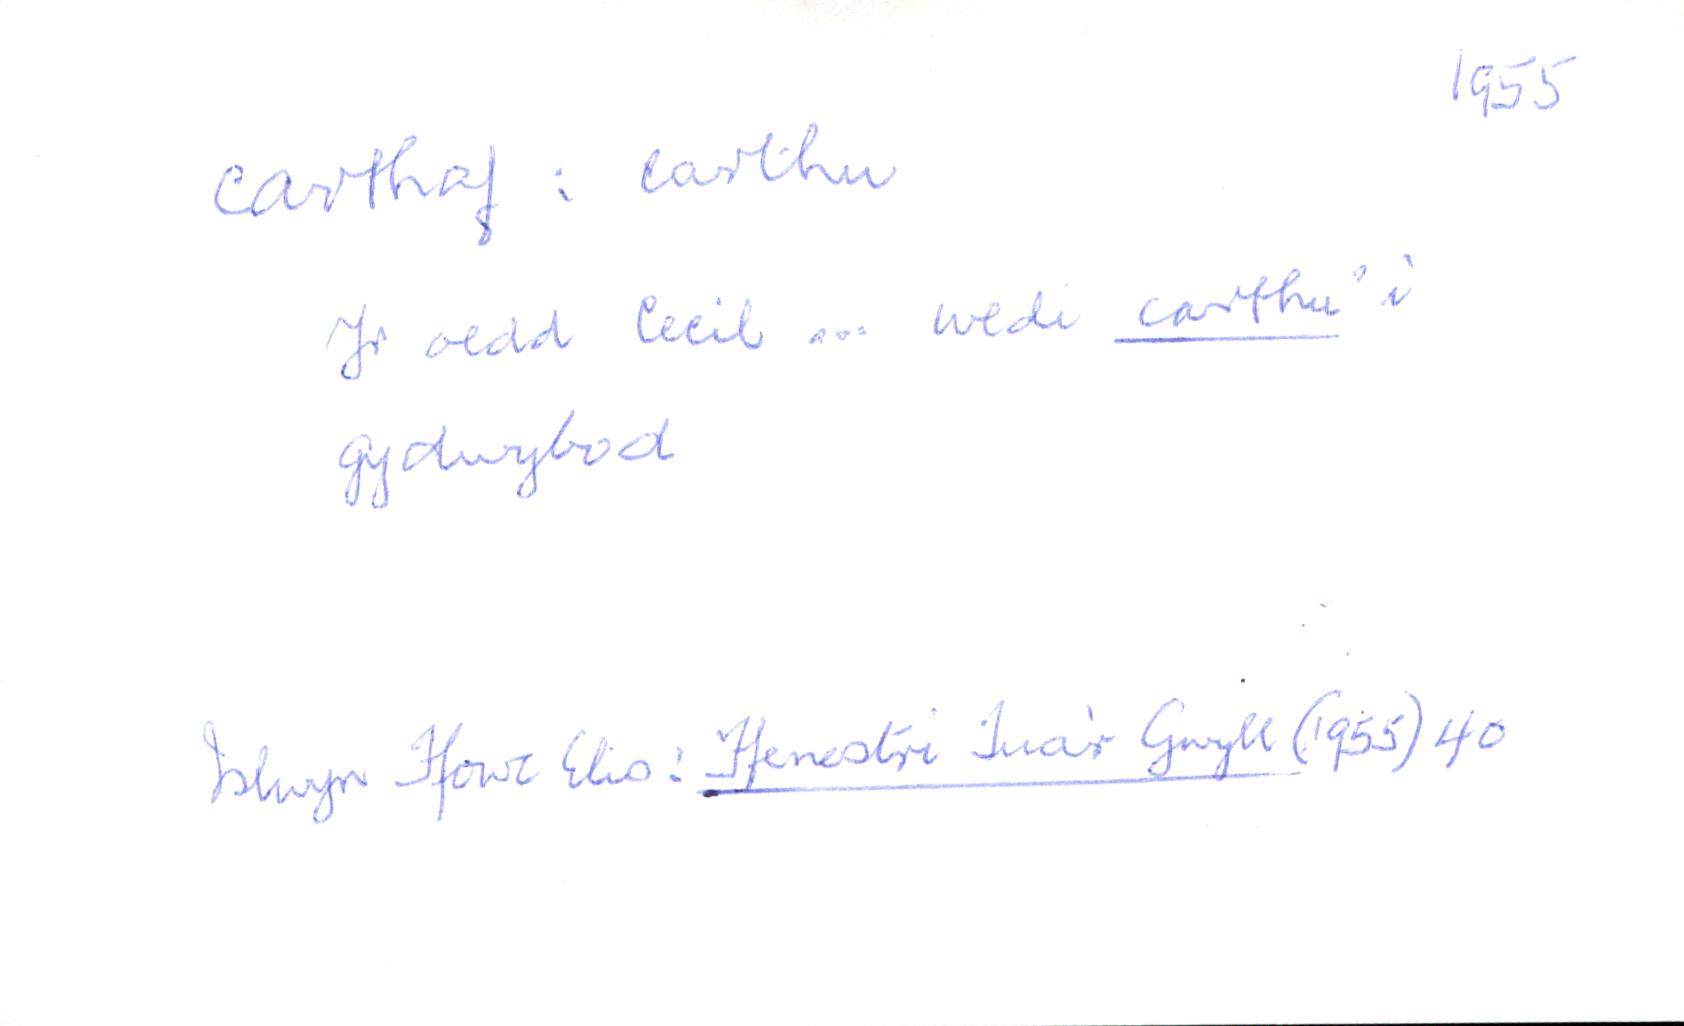 1955
carthaf : carthu
Yr oedd Cecil ... wedi carthu'i
gydwybod
Islwyn Ffowc Elis: Ffenestri Tua'r Gwyll (1955) 40